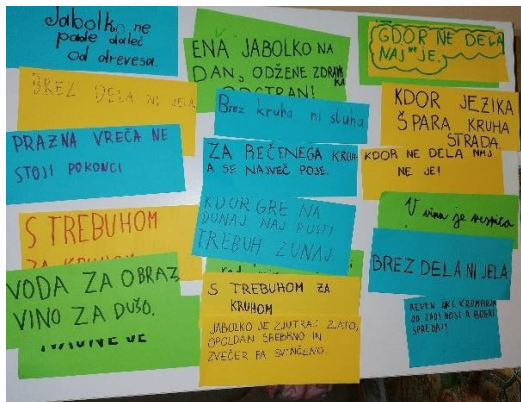 Jabolko ne
pade daleč
od drevesa.
BREZ DELA NI JELA
PRAZNA VREČA NE
STOJI POKONCI
S TREBUHOM
ZA KRUHOM
VODA ZA OBRAZ,
VINO ZA DUŠO.
ENA JABOLKO NA
DAN, ODŽENE ZDRAVNIKA
ODSTRANI!
Brez kruha ni sluha
ZA REČENEGA KRUHA
A SE NAJVEČ POJE.
KDOR GRE NA
DUNAJ NAJ PUSTI
TREBUH ZUNAJ.
S TREBUHOM ZA
KRUHOM
JABOLKO JE ZJUTRAJ ZLATO,
OPOLDAN SREBRNO IN
ZVEČER PA SVINČENO.
GDOR NE DELA
NAJ JE.
KDOR JEZIKA
ŠPARA KRUHA
STRADA.
KDOR NE DELA NAJ
NE JE!
V vinu je resnica
BREZ DELA NI JELA